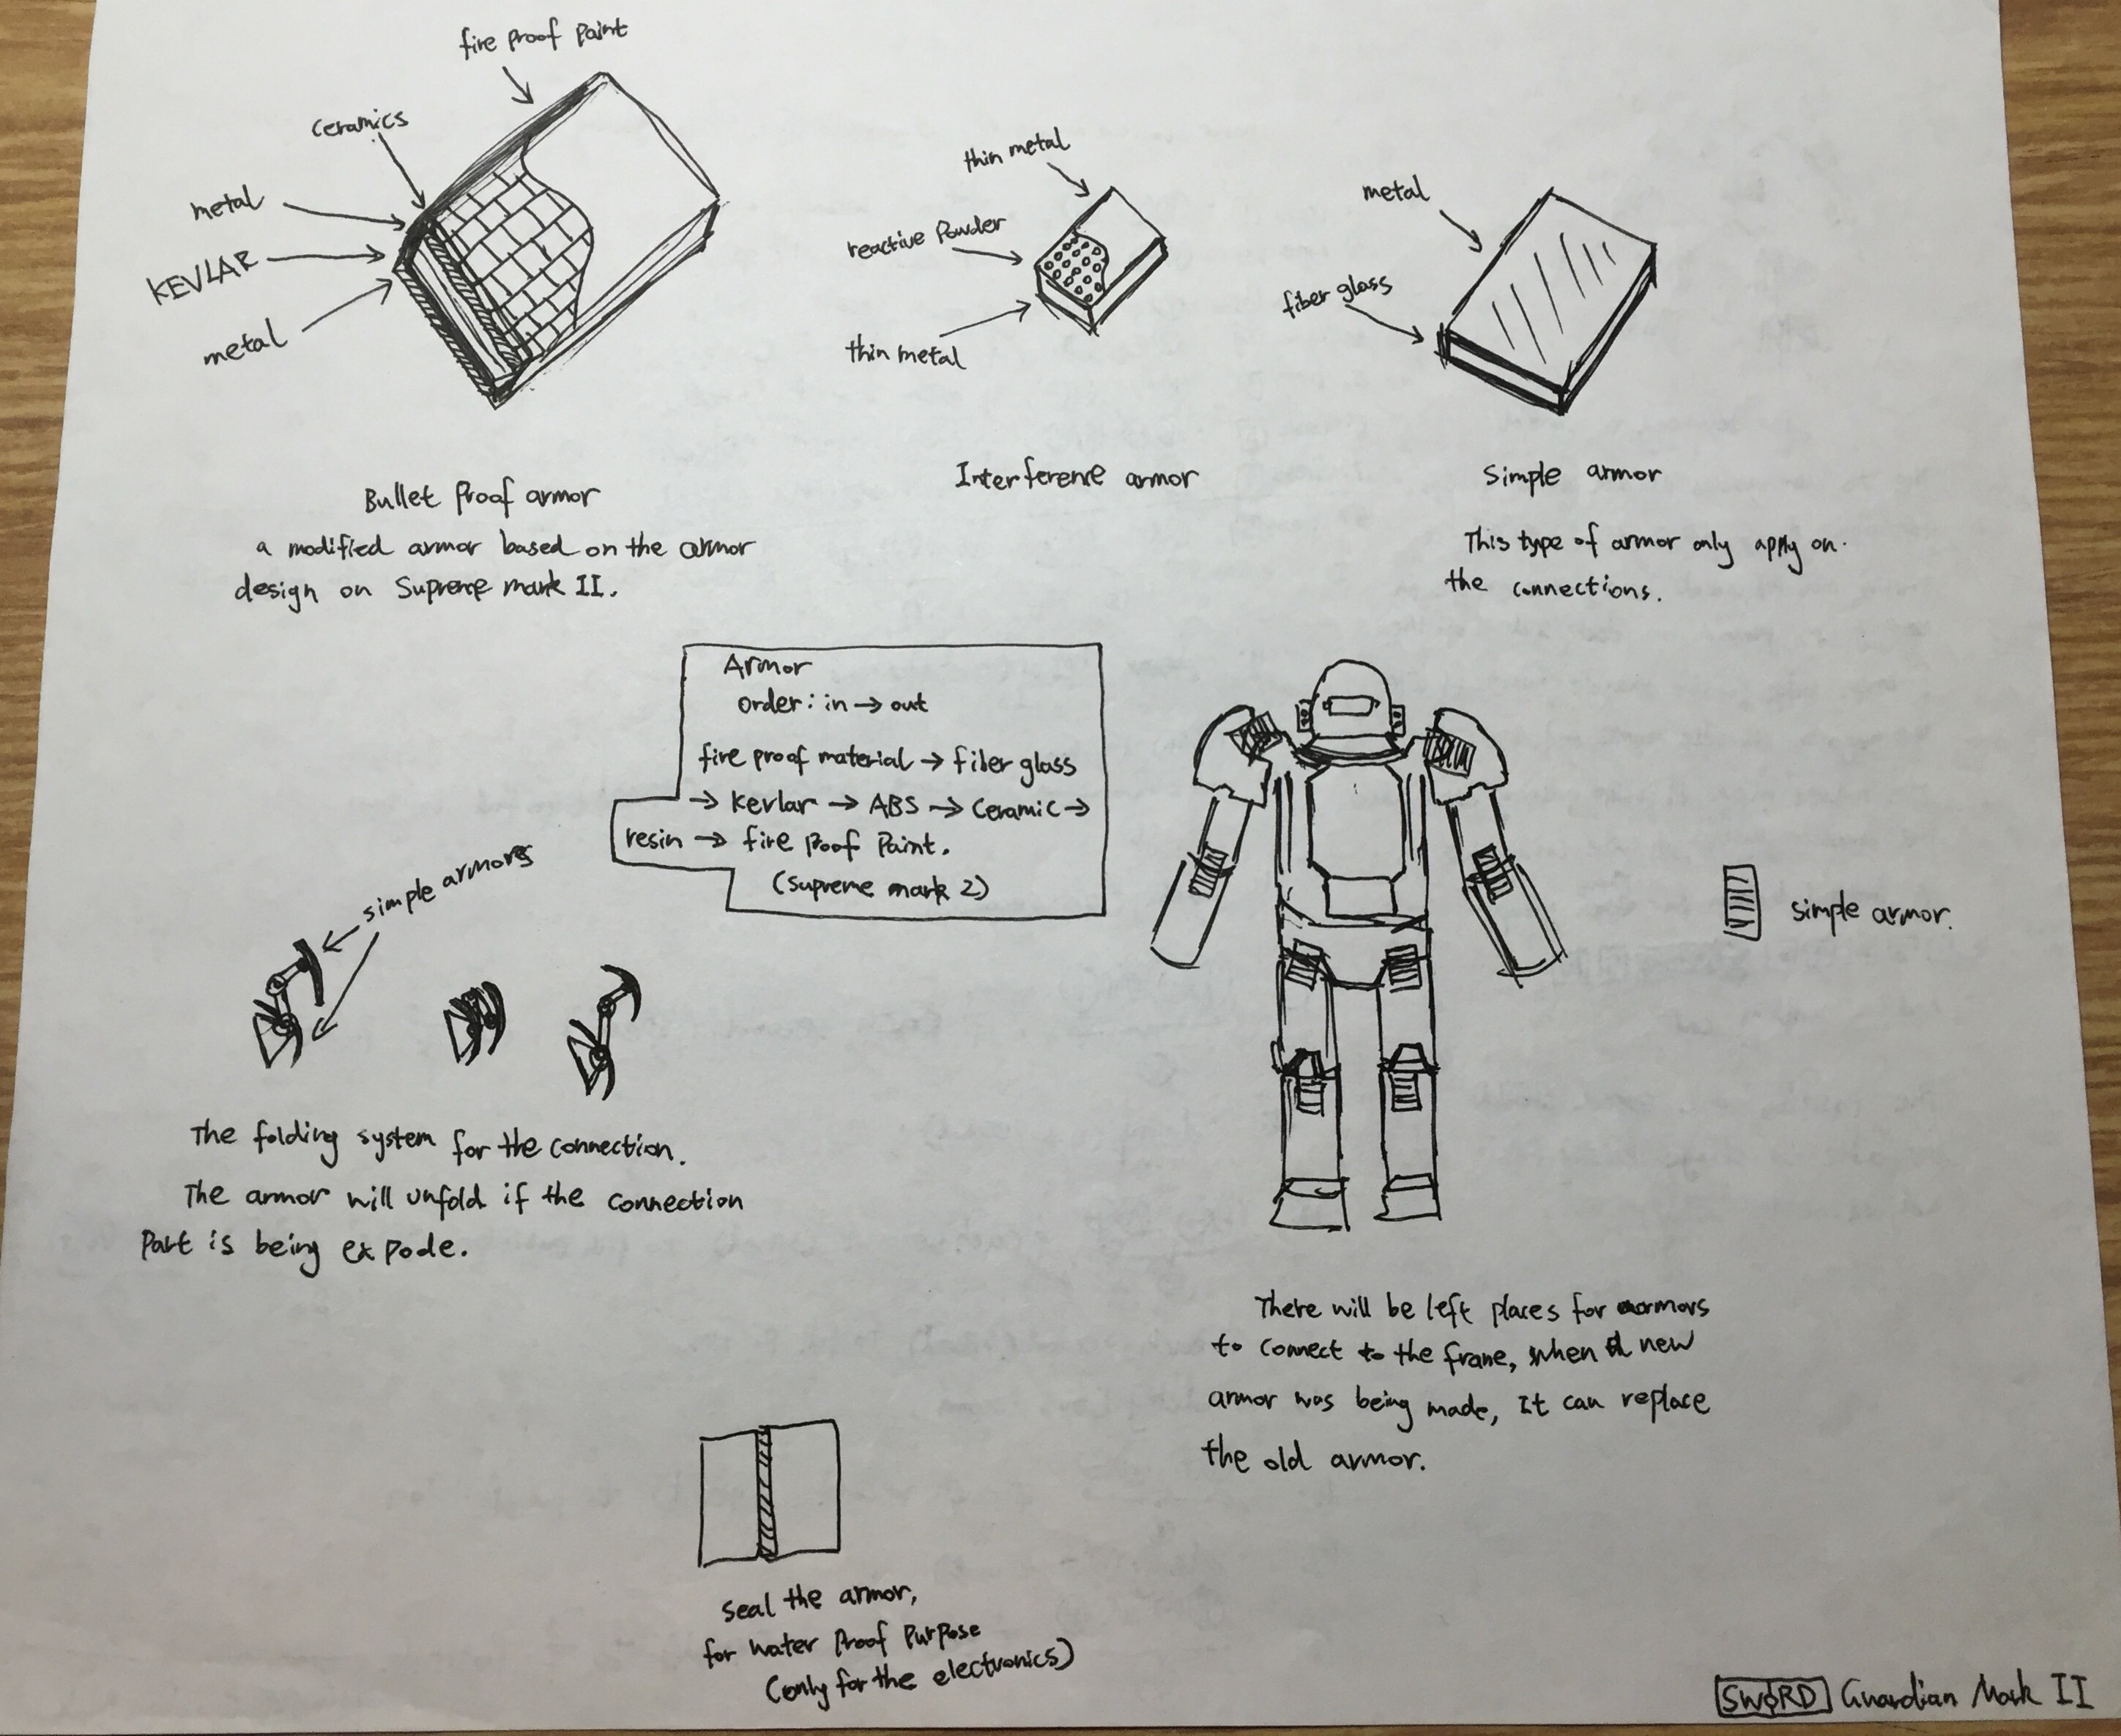 fire proof paint
ceramics
metal
KEVLAR
metal
Bullet proof armor
a modified armor based on the armor
design on Supreme mark II.
thin metal
reactive powder
thin metal
Interference armor
metal
fiber glass
Simple armor
This type of armor only apply on.
the connections.
Armor
order: in → out
fire proof material → fiber glass
→ kevlar → ABS → Ceramic →
resin → fire proof paint.
(supreme mark 2)
simple armors
The folding system for the connection.
The armor will unfold if the connection
part is being expode.
simple armor.
There will be left places for armors
to connect to the frame, when new
armor was being made, It can replace
the old armor.
seal the armor,
for water proof purpose
(only for the electronics)
SWORD Guardian Mark II